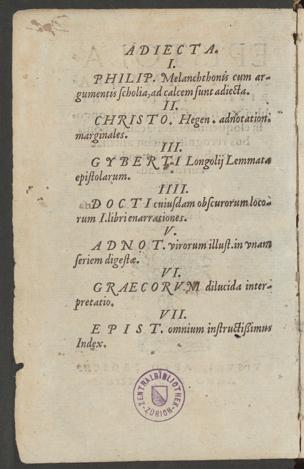 ADIECTA.
I.
PHILIP. Melanchthonis cum ar-
gumentis scholia, ad calcem sunt adiecta.
II.
CHRISTO. Hegen. adnotation.
marginales.
III.
GYBERTI Longolij Lemmata
epistolarum.
IIII.
DOCTI cuiusdam obscurorum loco-
rum I. libri enarrationes.
V.
ADNOT. virorum illust. in vnam
seriem digestæ.
VI.
GRAECORVM dilucida inter-
pretatio.
VII.
EPIST. omnium instructißimus
Index.
ZENTRALBIBLIOTHEK
ZÜRICH